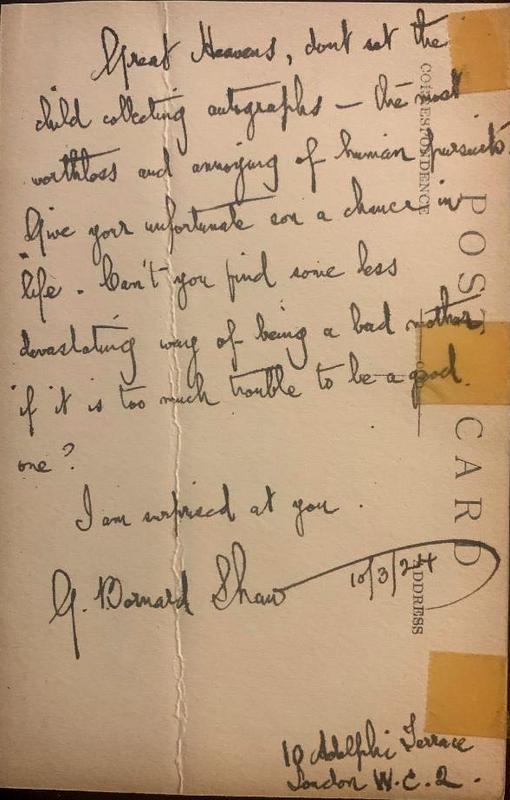 Great Heavens, dont set the
child collecting autographs — the most
worthless and annoying of human pursuits.
Give your unfortunate son a chance in
life. Can't you find some less
devastating way of being a bad mother,
if it is too much trouble to be a good
one?
I am surprised at you.
G. Bernard Shaw
10/3/24
10 Adelphi Terrace
London W.C.2.
POST CARD
CORRESPONDENCE
ADDRESS